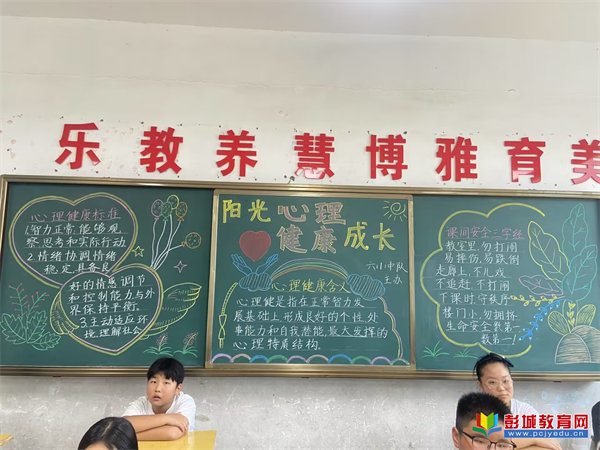 乐教养慧博雅育美
心理健康标准
1.智力正常,能够观
察、思考和实际行动
2.情绪协调情绪
稳定,具备良
好的情感调节
和控制能力与外
界保持平衡。
3.主动适应环
境,理解社会
阳光心理
健康成长
六(1)中队
主办
心理健康含义
心理健是指在正常智力发
展基础上形成良好的个性、处
事能力和自我潜能,最大发挥的
心理特质结构。
课间安全三字经
教室里,勿打闹
易摔伤,易跌倒
走廊上,不儿戏
不追赶,不打闹
下课时,守秩序
楼门小,勿拥挤
生命安全数第一
数第一!
彭城教育网
www.pcjyedu.cn